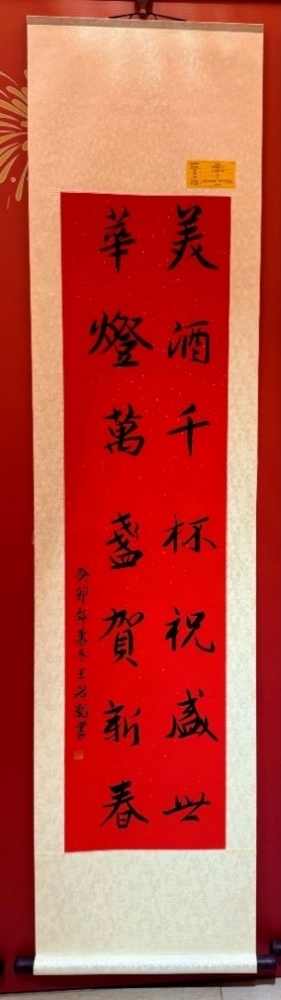 美酒千杯祝盛世
華燈萬盞賀新春
癸卯年